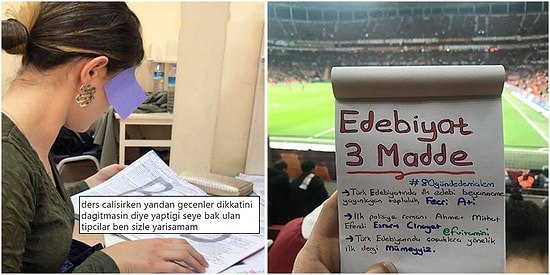 ders calisirken yandan gecenler dikkatini
dagitmasin diye yaptigi seye bak ulan
tipciler ben sizle yarisamam
Edebiyat
3 Madde
#80gündedemialem
→ Türk Edebiyatında ilk edebi beyanname
yayınlayan topluluk Fecri Ati
→ İlk polisiye romanı Ahmet Mithat
Efendi Esrarı Cinayet
@fvitamini
→ Türk Edebiyatında çocuklara yönelik
ilk dergi Mümeyyiz.